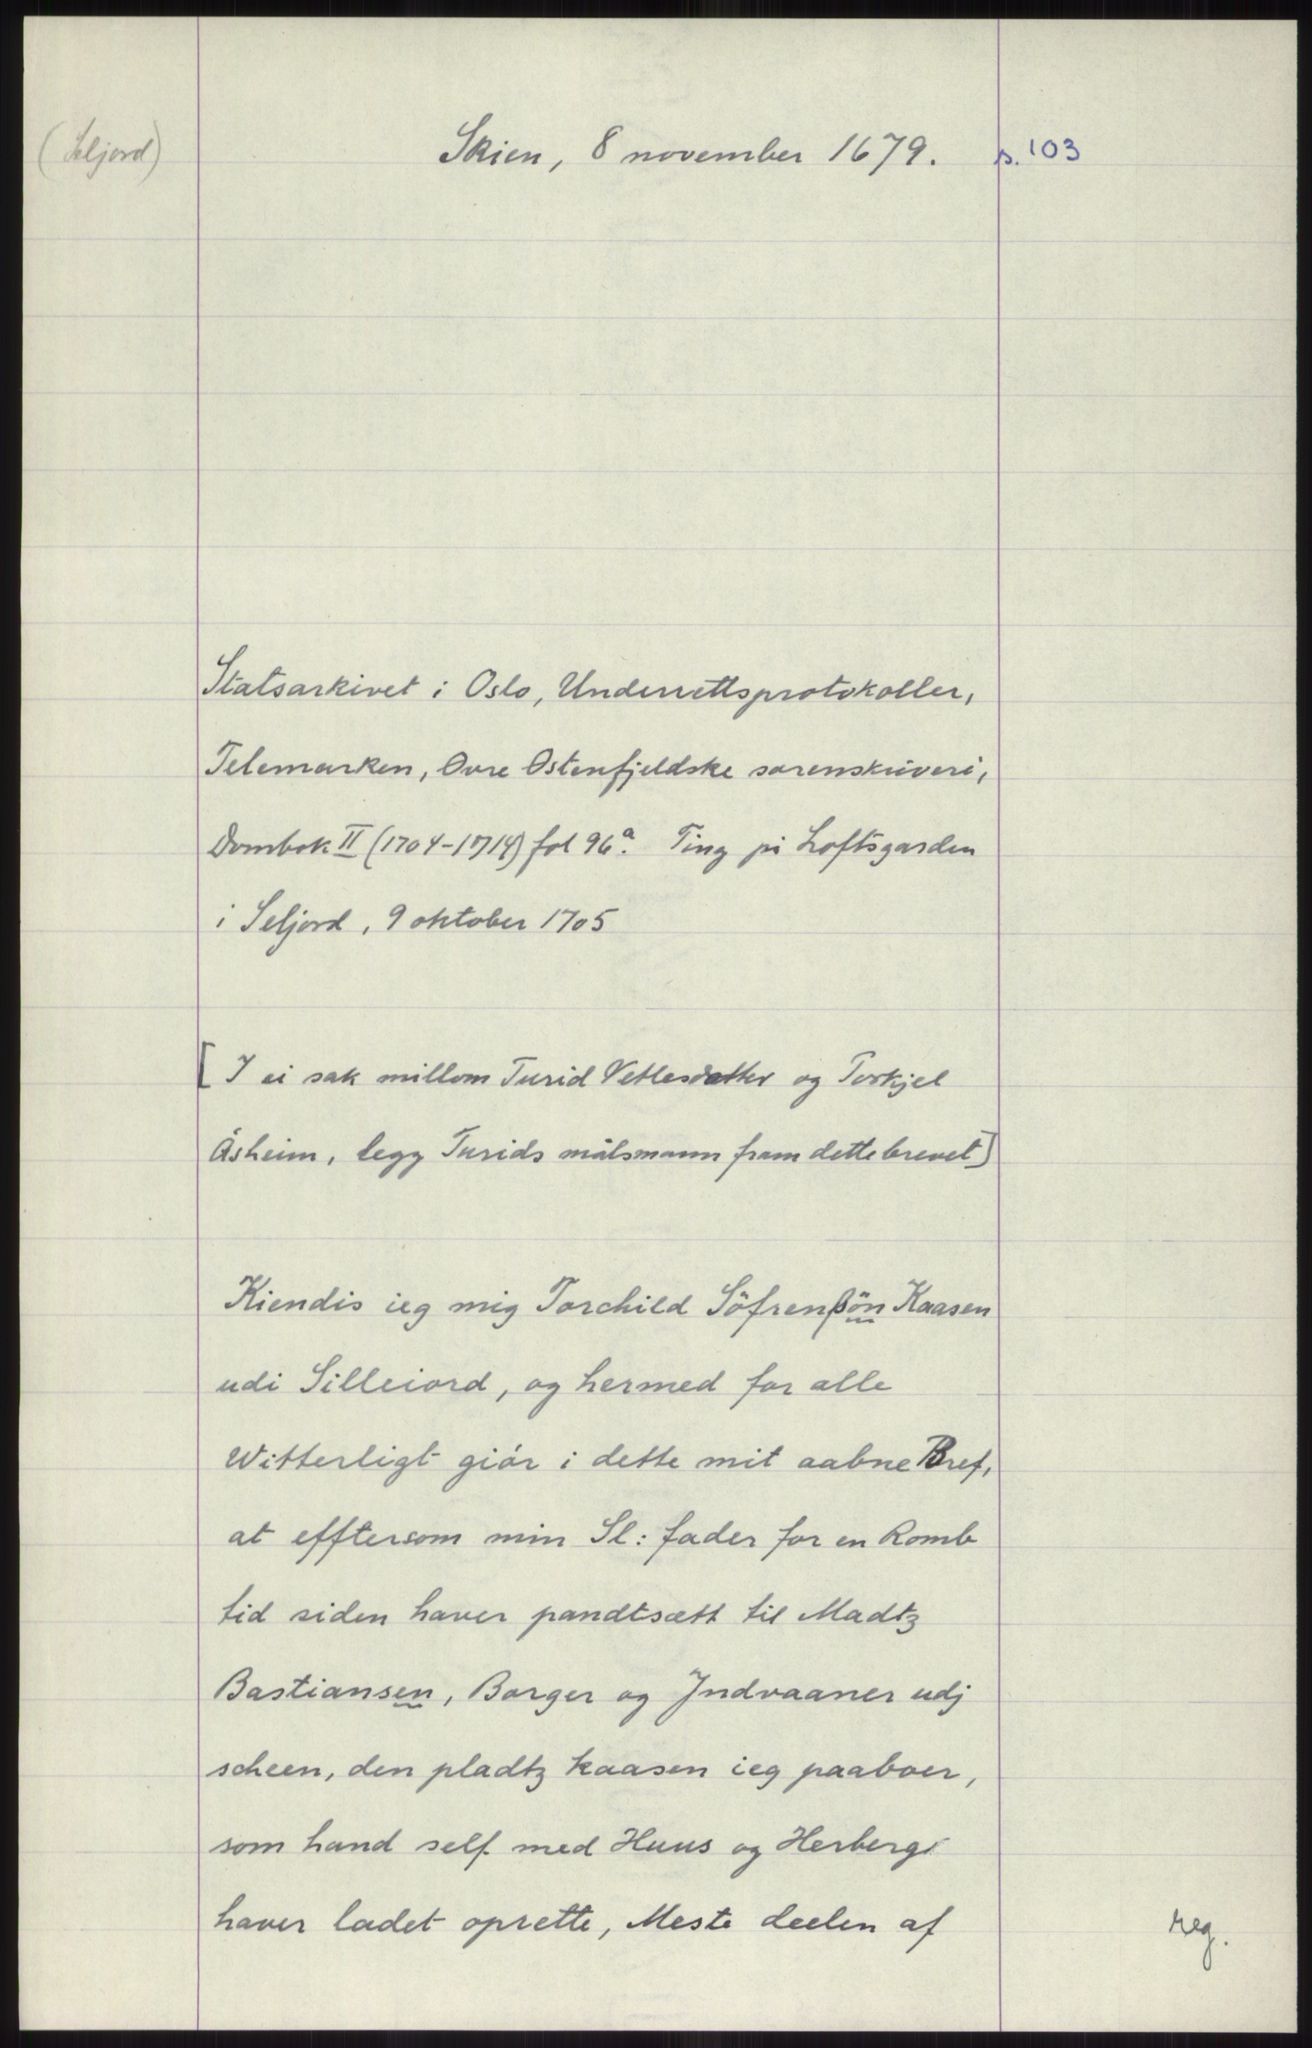 (Seljord)
Skien, 8 november 1679.
s. 103
Statsarkivet i Oslo, Underrettsprotokoller,
Telemarken, Øvre Østenfjeldske sorenskriveri,
Dombok II (1704-1714) fol 96a. Ting på Loftsgarden
i Seljord, 9 oktober 1705
[I ei sak millom Turid Vetlesdotter og Torkjel
Åsheim, legg Turids målsmann fram dette brevet]
Kiendis ieg mig Torchild Söfrenßön Kaasen
udi Silleiord, og hermed for alle
Witterligt giör i dette mit aabne Bref,
at efftersom min Sl: fader for en Romb
tid siden haver pandtsætt til Madtz
Bastiansen, Borger og Indvaaner udj
scheen, den pladtz kaasen ieg paaboer,
som hand self med Huus og Herberge
haver ladet oprette, Meste deelen af
reg.